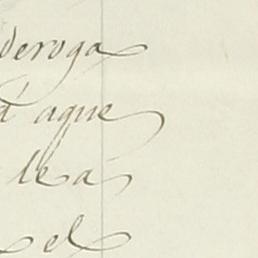 deroga
á aque
lea
el